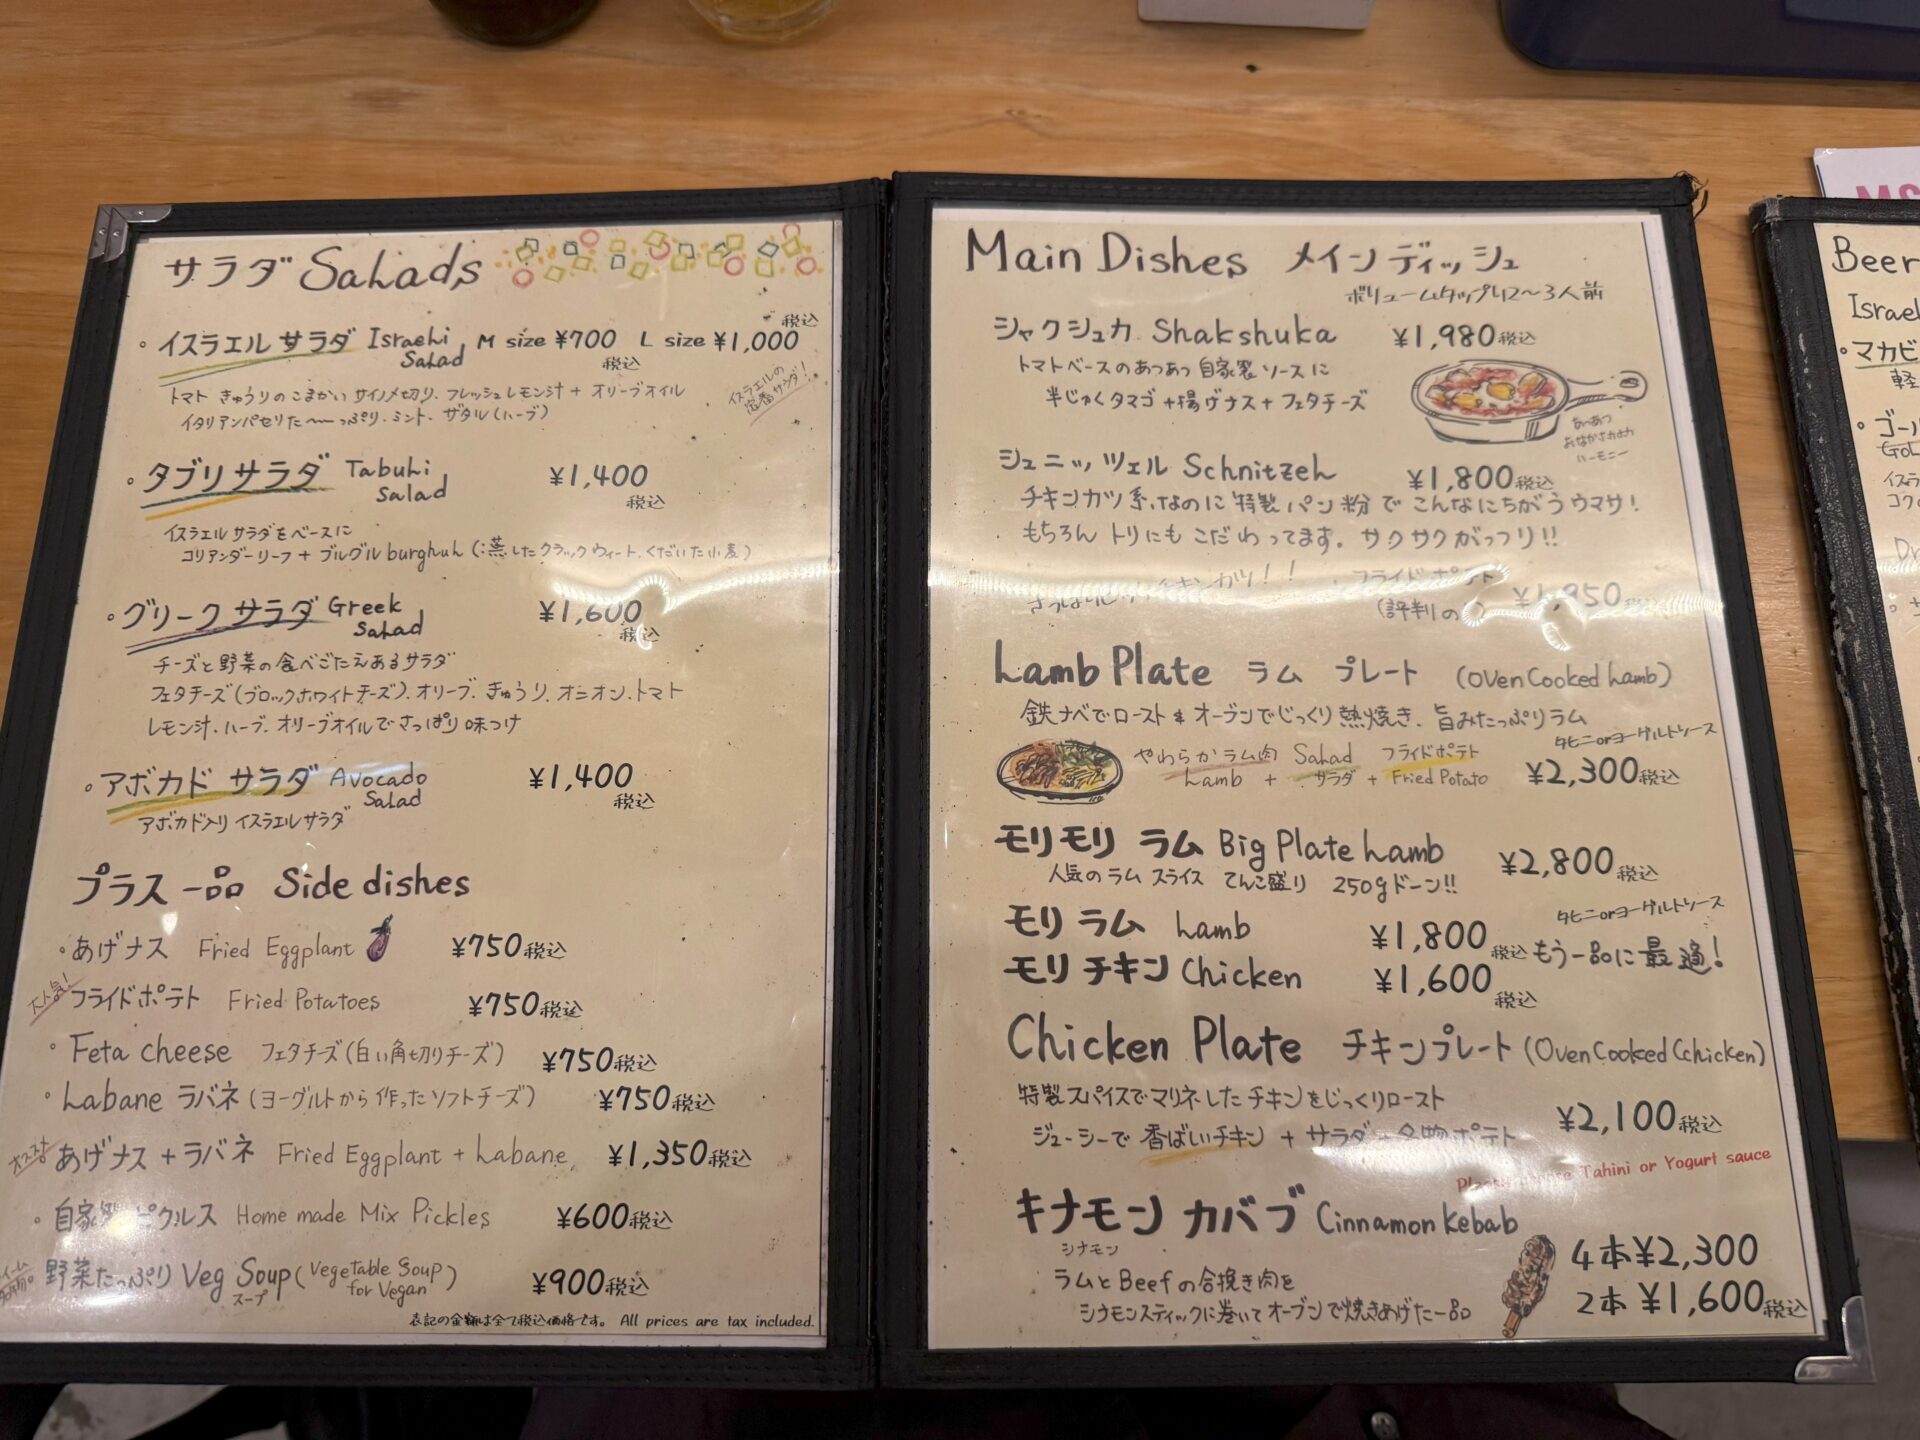 サラダ Salads
・イスラエル サラダ Israeli Salad M size ¥700 税込 L size ¥1,000 税込
トマト きゅうりのこまかい サイノメ切り、フレッシュレモン汁 + オリーブオイル
イタリアンパセリた〜っぷり、ミント、ザタル(ハーブ)
イスラエルの定番サラダ!
・タブリサラダ Tabuli Salad ¥1,400 税込
イスラエルサラダをベースに
コリアンダーリーフ + ブルグル burghul (蒸したクラックウィート、くだいた小麦)
・グリーク サラダ Greek Salad ¥1,600 税込
チーズと野菜の食べごたえあるサラダ
フェタチーズ(ブロックホワイトチーズ)、オリーブ、きゅうり、オニオン、トマト
レモン汁、ハーブ、オリーブオイルでさっぱり味つけ
・アボカド サラダ Avocado Salad ¥1,400 税込
アボカド入り イスラエルサラダ
プラス一品 Side dishes
・あげナス Fried Eggplant ¥750税込
大人気! フライドポテト Fried Potatoes ¥750税込
・Feta cheese フェタチーズ(白い角切りチーズ) ¥750税込
・Labane ラバネ (ヨーグルトから作ったソフトチーズ) ¥750税込
オススメ あげナス + ラバネ Fried Eggplant + Labane ¥1,350税込
・自家製ピクルス Home made Mix Pickles ¥600税込
野菜たっぷり Veg Soup スープ (Vegetable Soup for Vegan) ¥900税込
表記の金額は全て税込価格です。 All prices are tax included.
Main Dishes メインディッシュ
ボリュームタップリ2〜3人前
シャクシュカ Shakshuka ¥1,980税込
トマトベースのあつあつ自家製ソースに
半じゅくタマゴ+揚げナス+フェタチーズ
あつあつ
ハーモニー
シュニッツェル Schnitzel ¥1,800税込
チキンカツ系、なのに特製パン粉でこんなにちがうウマサ!
もちろん トリにも こだわってます。サクサクがっつり!!
チキンカツ!! フライドポテト
(評判の
Lamb Plate ラム プレート (Oven Cooked Lamb)
鉄ナベでロースト & オーブンでじっくり熱焼き、旨みたっぷりラム
タヒニorヨーグルトソース
やわらかラム肉 Salad フライドポテト
Lamb + サラダ + Fried Potato ¥2,300税込
モリモリ ラム Big Plate Lamb ¥2,800税込
人気のラム スライス てんこ盛り 250gドーン!!
タヒニorヨーグルトソース
モリ ラム Lamb ¥1,800税込 もう一品に最適!
モリ チキン Chicken ¥1,600税込
Chicken Plate チキンプレート (Oven Cooked Chicken)
特製スパイスでマリネしたチキンをじっくりロースト
ジューシーで 香ばしいチキン + サラダ + 名物ポテト ¥2,100税込
Tahini or Yogurt sauce
キナモン カバブ Cinnamon Kebab
シナモン
ラムとBeefの合挽き肉を
シナモンスティックに巻いてオーブンで焼きあげた一品
4本¥2,300
2本 ¥1,600税込
Beer